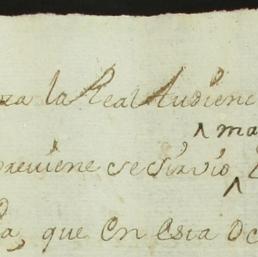 la Real Audienc
ma
previene se sirvio
que en esta oc